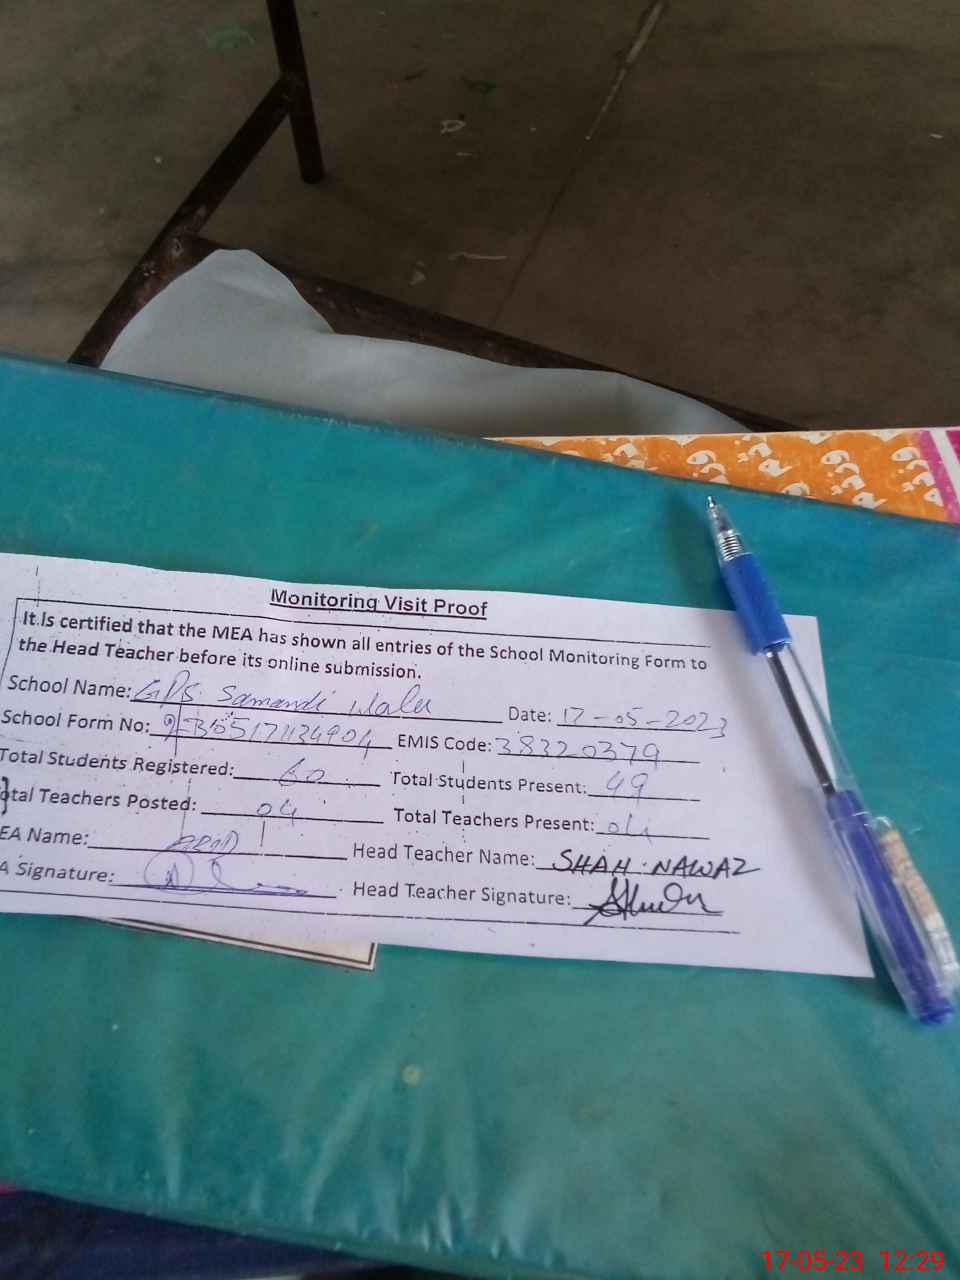 Monitoring Visit Proof
It Is certified that the MEA has shown all entries of the School Monitoring Form to
the Head Teacher before its online submission.
School Name: GPS Samandi Wala Date: 17-05-2023
School Form No: EMIS Code: 38320379
Total Students Registered: 60 Total Students Present: 49
otal Teachers Posted: 04 Total Teachers Present: 04
EA Name: Head Teacher Name: SHAH NAWAZ
A Signature: Head Teacher Signature:
17-05-23 12:29